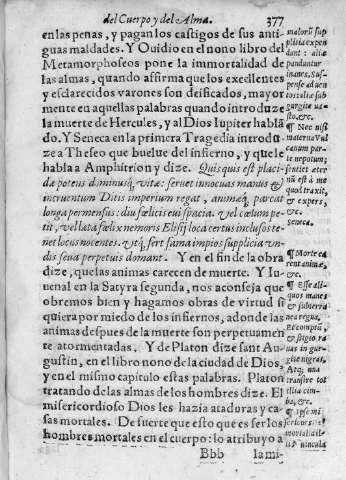 del Cuerpo y del Alma. 377
en las penas, y pagan los castigos de sus anti-
guas maldades. Y Ouidio en el nono libro del
Metamorphoseos pone la immortalidad de
las almas, quando affirma que los excellentes
y esclarecidos varones son deificados, mayor
mente en aquellas palabras quando introduze
la muerte de Hercules, y al Dios Iupiter hablã
do. Y Seneca en la primera Tragedia introdu
ze a Theseo que buelue del infierno, y que le
habla a Amphitrion y dize. Quisquis est placi-
dæ potens dominusq; vitæ: seruet innocuas manus &
incruentum Ditis imperium regat, animæq; parcat
longa permensus: diu fœlicis eui spacia. Vel cœlum pe-
tit, vel læta fœlix nemoris Elisij loca certus inclusos te-
net locus nocentes. Vtq; fert fama impios supplicia vin-
dis seua perpetuis domant. Y en el fin de la obra
dize, que las animas carecen de muerte. Y Iu-
uenal en la Satyra segunda, nos aconseja que
obremos bien y hagamos obras de virtud si
quiera por miedo de los infiernos, adonde las
animas despues de la muerte son perpetuamen-
te atormentadas. Y de Platon dize sant Au-
gustin, en el libro nono de la ciudad de Dios,
y en el mismo capitulo estas palabras. Platon
tratando de las almas de los hombres dize. El
misericordioso Dios les hazia ataduras y ca-
sas mortales. De suerte que esto que es ser los
hombres mortales en el cuerpo: lo atribuyo a
Bbb lami-
malorũ sup
plitia expen
dunt: aliæ
panduntur
inanes, Sus-
pensæ ad uen
tos: alijs sub
gurgite ua-
sto, &c.
¶ Nec nisi
materna Vul
canum par-
te
nũ est à me
quod traxit,
& expers,
&c.
Seneca.
¶ Morte ca
rent animæ,
&c.
¶ Esse ali-
quos manes
& subterra
nea regna,
& stigio ra
nas in gur-
gite nigras,
Atq; una
transire tot
cim-
ba, &c.
¶ Ipsi mi